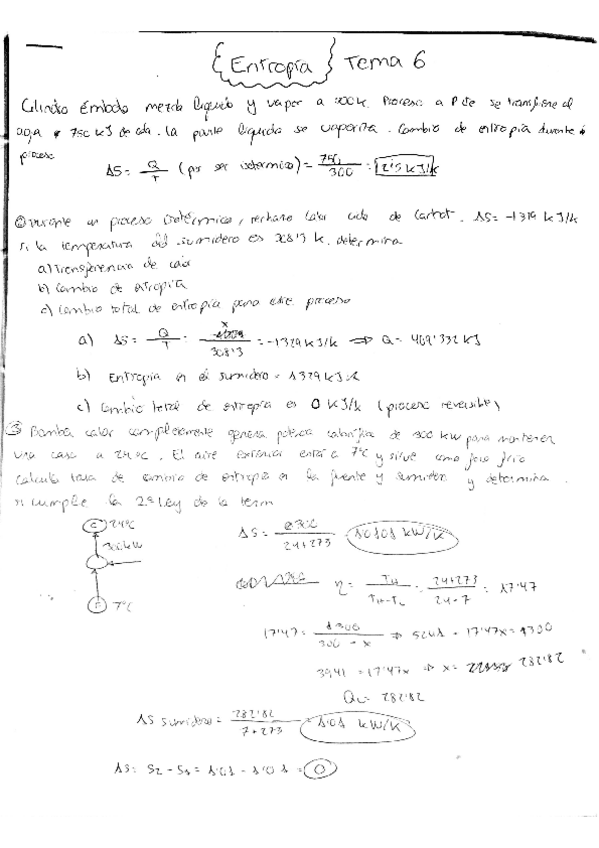 Entropía Tema 6
Cilindro Émbolo mezcla líquido y vapor a 300k. Proceso a P cte se transfiere al
agua 750 kJ de calor. La parte líquida se vaporiza. Cambio de entropía durante
proceso
ΔS = Q/T (por ser isotérmico) = 750/300 = 2'5 kJ/k
② Durante un proceso isotérmico, rechazo calor ciclo de Carnot. ΔS = -1'319 kJ/k
si la temperatura del sumidero es 308'3 k. determina
a) Transferencia de calor
b) Cambio de entropía
c) Cambio total de entropía para este proceso
a) ΔS = Q/T = x/308'3 = -1'329 kJ/k ⇒ Q = 409'332 kJ
b) Entropía en el sumidero = 1'329 kJ/k
c) Cambio total de entropía es 0 kJ/k (proceso reversible)
③ Bomba calor completamente genera potencia calorífica de 300 kW para mantener
una casa a 24ºC. El aire exterior está a 7ºC y sirve como foco frío
calcula tasa de cambio de entropía en la fuente y sumidero y determina
si cumple la 2ª Ley de la term
C 24ºC
300 kW
F 7ºC
ΔS = 300/24+273 = 1'0101 kW/K
η = TH/TH-TL = 24+273/24-7 = 17'47
17'47 = 300/300-x ⇒ 5241 - 17'47x = 300
3941 = 17'47x ⇒ x = 282'82
QL = 282'82
ΔS sumidero = 282'82/7+273 = 1'01 kW/K
ΔS = S2 - S1 = 1'01 - 1'01 = 0